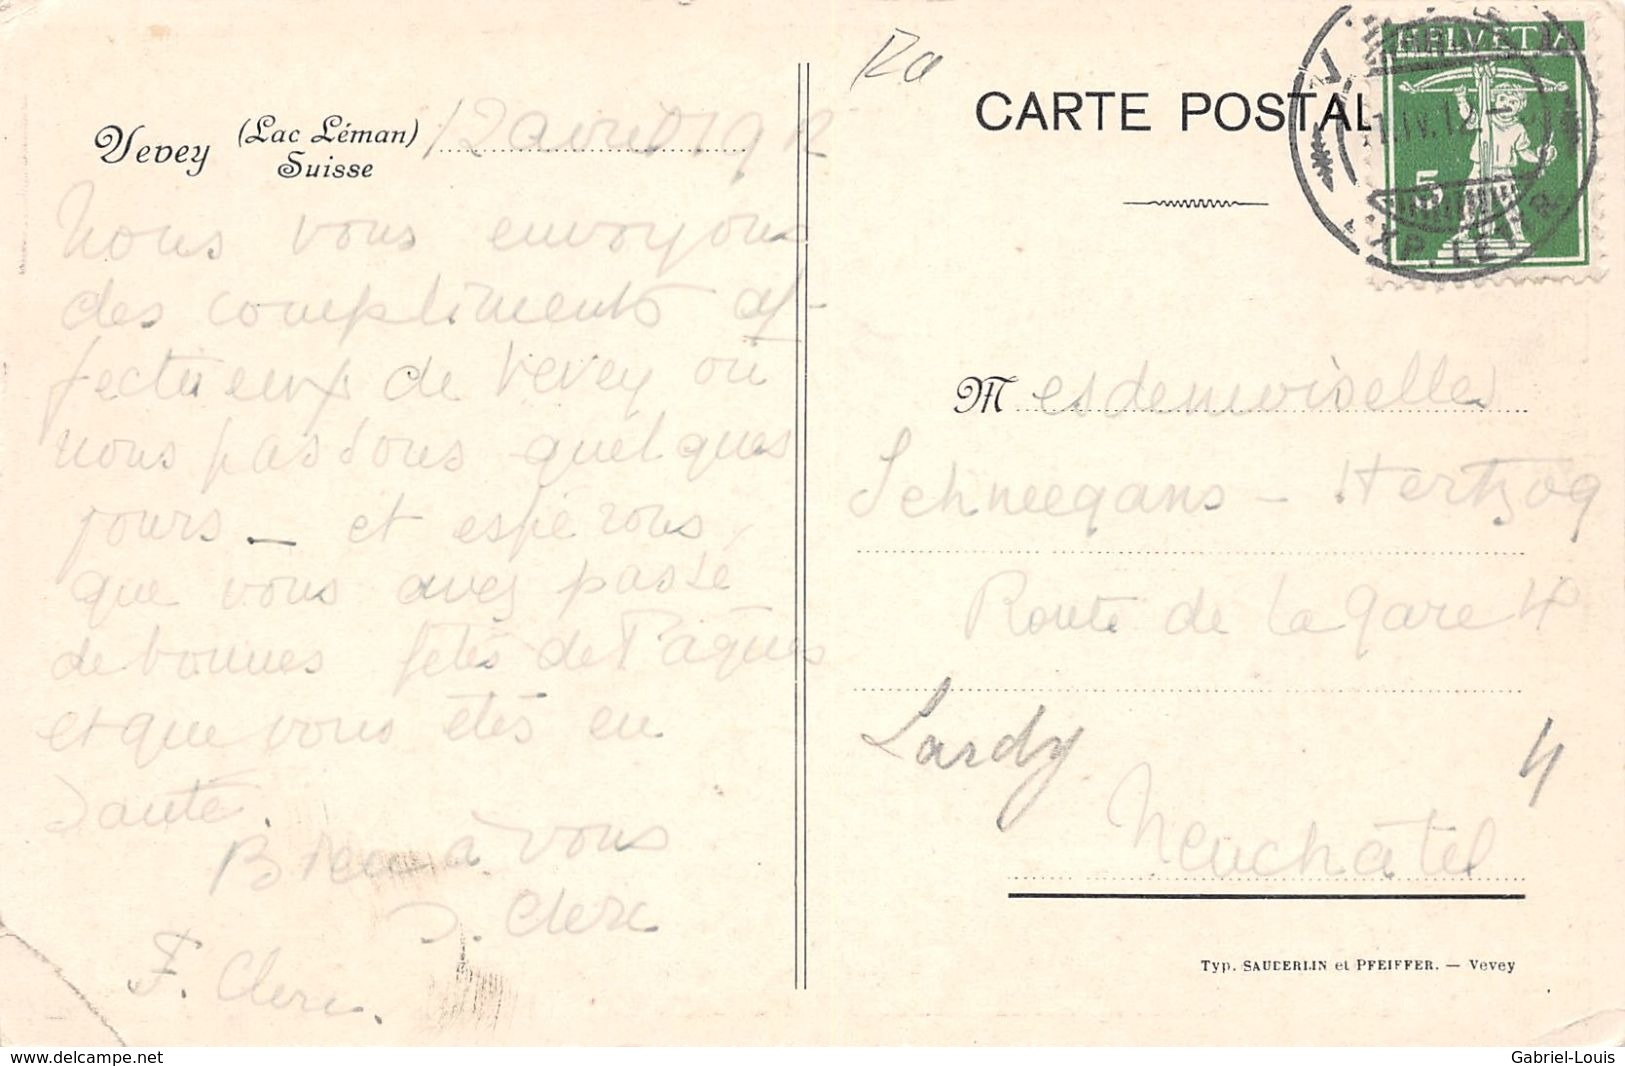 Vevey (Lac Léman) Suisse 12 avril 1912
Nous vous envoyons
des compliments af-
fectueux de Vevey où
nous passons quelques
jours _ et espérons
que vous avez passé
de bonnes fêtes de Pâques
et que vous êtes en
santé.
Bien à vous
J. Clerc
F. Clerc.
CARTE POSTALE
HELVETIA
5
EXP. LETTR.
Mesdemoiselles
Schneegans - Hertzog
Route de la gare 4
Lardy 4
Neuchâtel
Typ. SAUBERLIN et PFEIFFER. — Vevey
www.delcampe.net
Gabriel-Louis